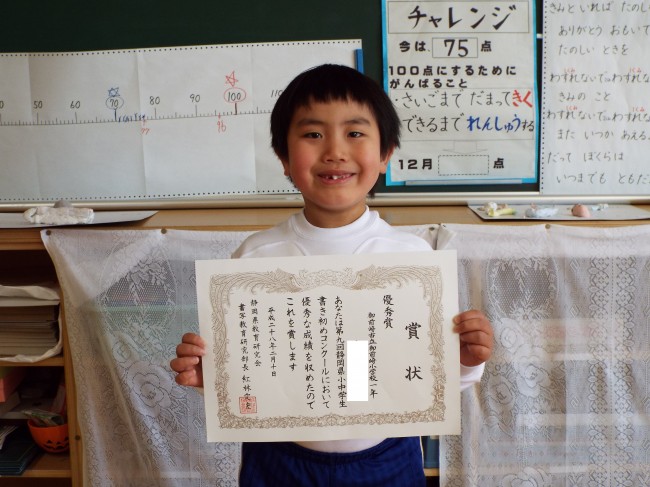 チャレンジ
今は 75 点
100点にするために
がんばること
・さいごまで だまってきく
・できるまで れんしゅうする
12月 点
きみと いれば たのし
ありがとう おもいで
たのしい ときを
わすれないで わすれな
きみの こと
わすれないで わすれな
また いつか あえる
だって ぼくらは
いつまでも ともだ
50 60 70 80 90 100 110
77
96
賞状
優秀賞
御前崎市立御前崎小学校一年
あなたは第九回静岡県小中学生
書き初めコンクールにおいて
優秀な成績を収めたので
これを賞します
平成二十八年二月十日
静岡県教育研究会
書写教育研究部長 紅林